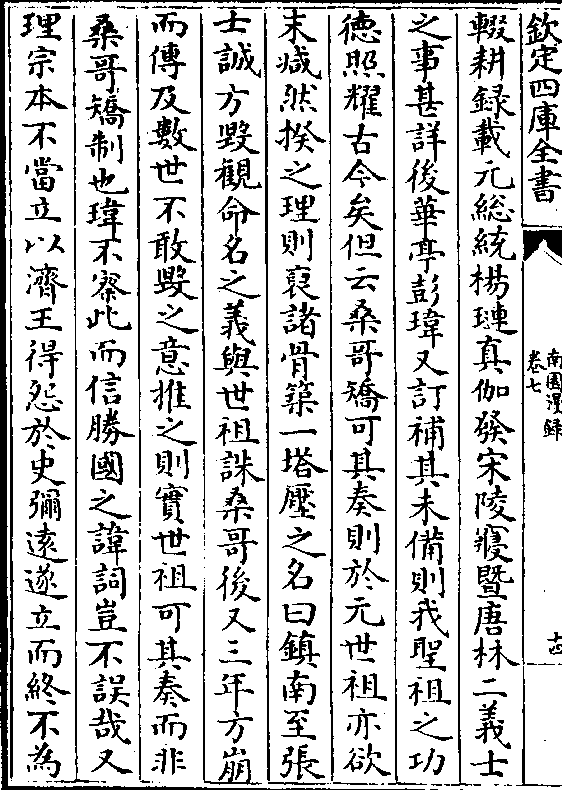 欽定四庫全書
南園漫録
卷七
十四
輟耕録載元総統楊璉真伽發宋陵寢暨唐林二義士
之事甚詳後華亭彭瑋又訂補其未備則我聖祖之功
德照耀古今矣但云桑哥矯可其奏則於元世祖亦欲
末减然揆之理則裒諸骨築一塔壓之名曰鎮南至張
士誠方毀觀命名之義與世祖誅桑哥後又三年方崩
而傳及數世不敢毀之意推之則實世祖可其奏而非
桑哥矯制也瑋不察此而信勝國之諱詞豈不誤哉又
理宗本不當立以濟王得怨於史彌遠遂立而終不為